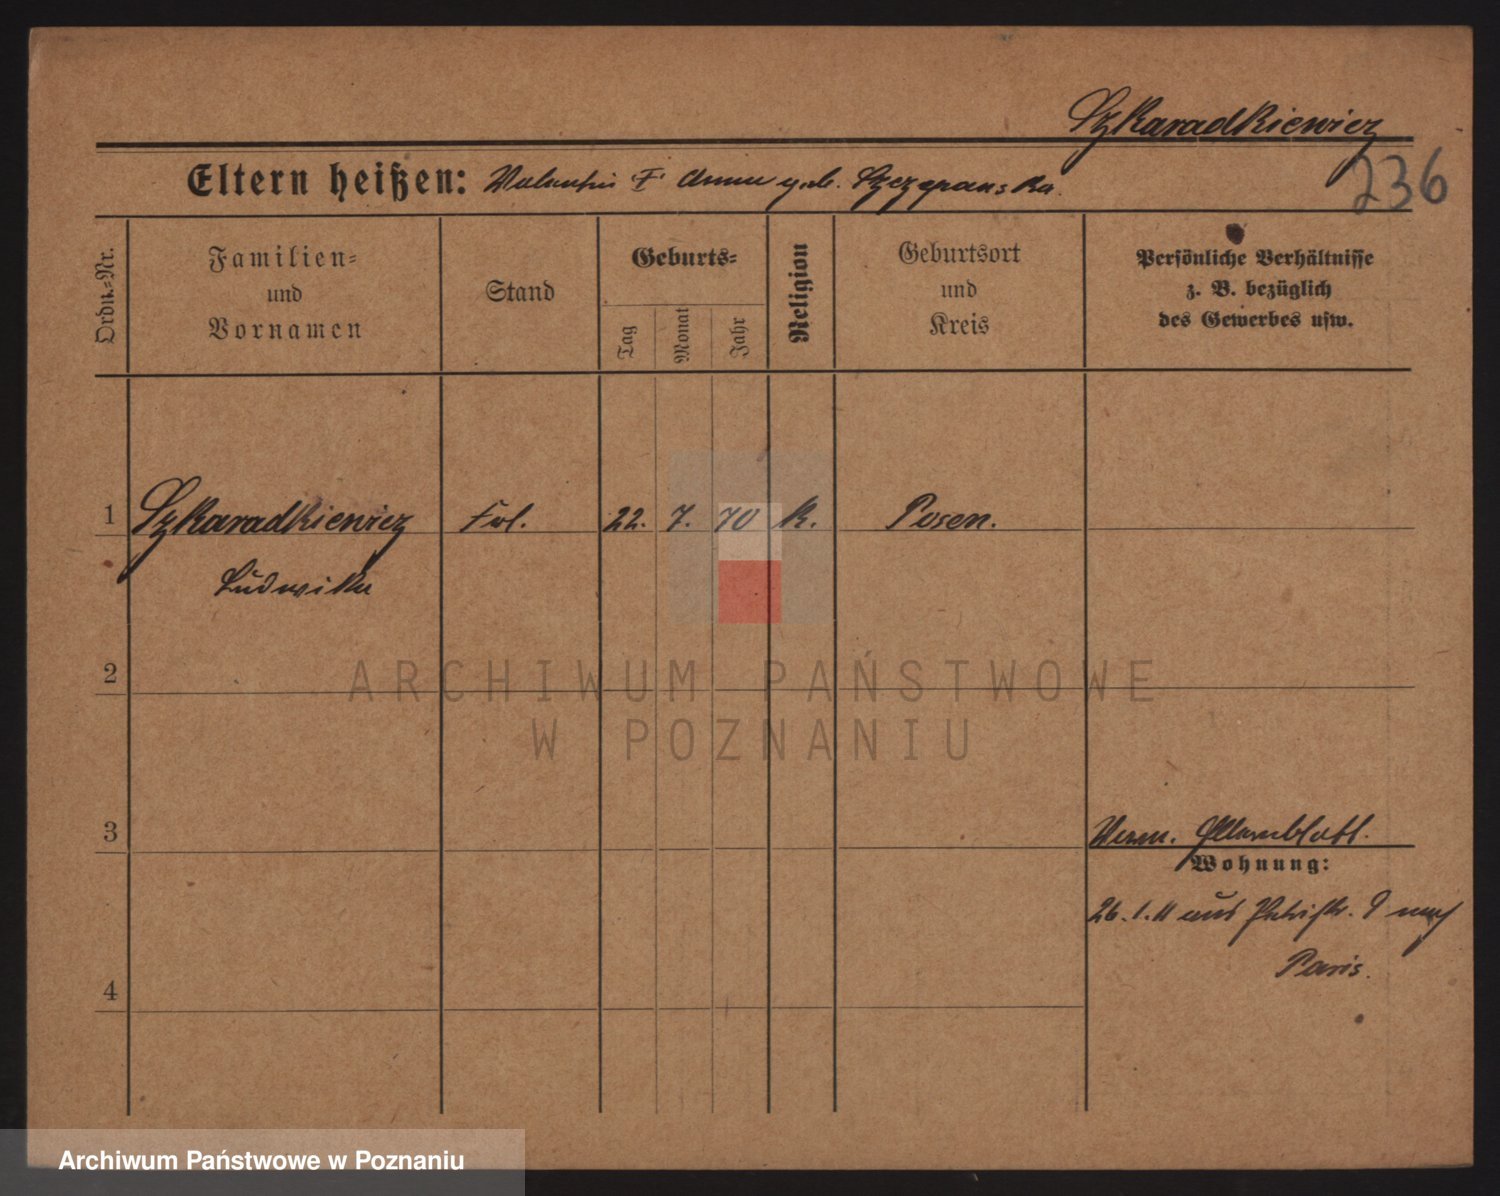 Szkaradkiewicz
236
Eltern heißen: Valentin F Anna geb. Szczepanska.
Ordn.-Nr.
Familien-
und
Vornamen
Stand
Geburts-
Tag
Monat
Jahr
Religion
Geburtsort
und
Kreis
Persönliche Verhältnisse
z. B. bezüglich
des Gewerbes usw.
1 Szkaradkiewicz Frl. 22. 7. 70 k. Posen.
Ludwika
2
ARCHIWUM PAŃSTWOWE
W POZNANIU
3
Wohnung:
26.1.11 aus Petristr. 9 nach
Paris.
4
Archiwum Państwowe w Poznaniu